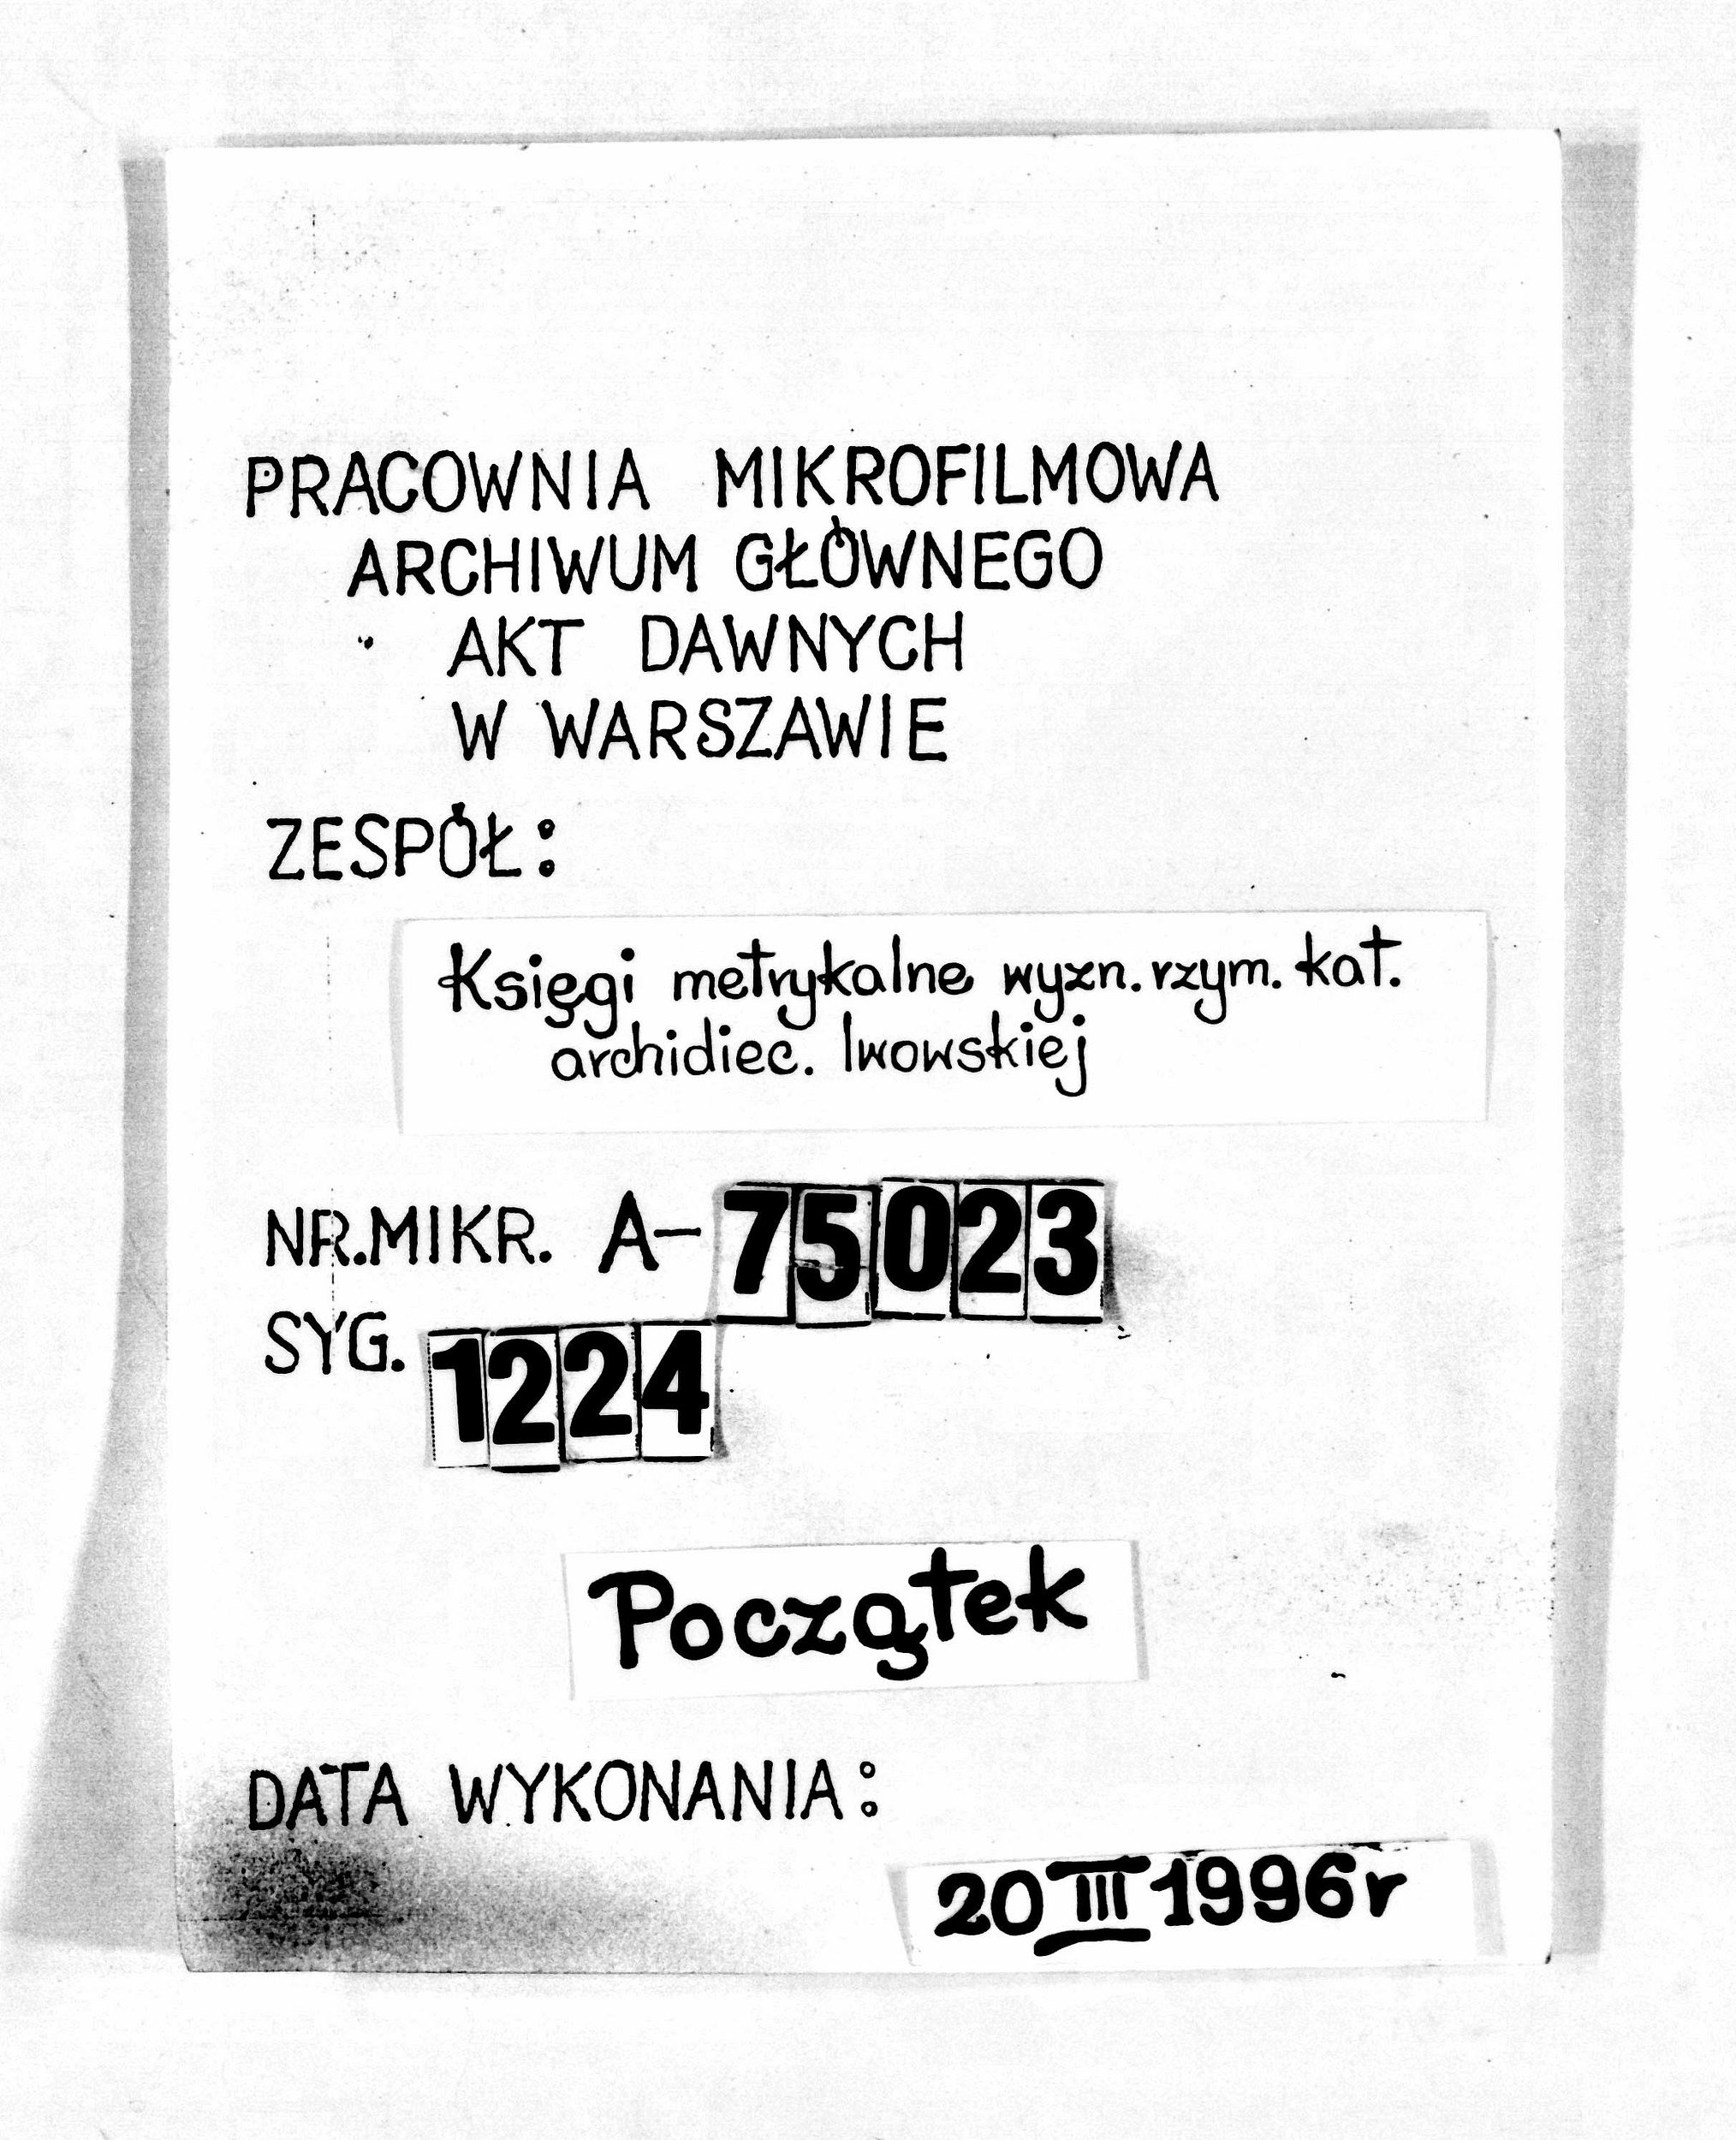 PRACOWNIA MIKROFILMOWA
ARCHIWUM GŁÓWNEGO
AKT DAWNYCH
W WARSZAWIE
ZESPÓŁ:
Księgi metrykalne wyzn. rzym. kat.
archidiec. lwowskiej
NR.MIKR. A-75023
SYG. 1224
Początek
DATA WYKONANIA:
20 III 1996r